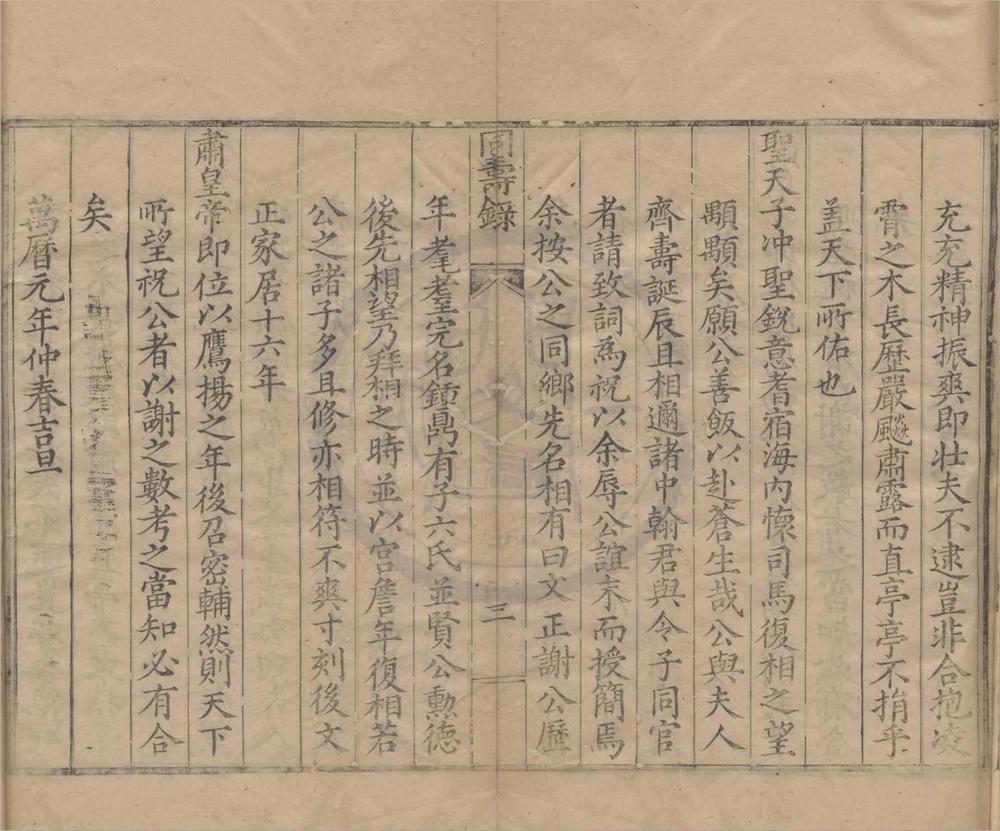 充充精神振爽即壮夫不逮豈非合抱凌
霄之木長歷嚴颷肅露而直亭亭不捎乎
盖天下所佑也
聖天子冲聖銳意耆宿海內懷司馬復相之望
顒顒矣願公善飯以赴蒼生哉公與夫人
齊壽誕辰且相邇諸中翰君與令子同官
者請致詞為祝以余辱公誼末而授簡焉
余按公之同鄉先名相有曰文正謝公歷
同壽錄
三
年耄耋完名鍾鼎有子六氏並賢公勲德
後先相望乃拜相之時並以宫詹年復相若
公之諸子多且修亦相符不爽寸刻後文
正家居十六年
肅皇帝即位以鷹揚之年後召密輔然則天下
所望祝公者以謝之數考之當知必有合
矣
萬曆元年仲春吉旦